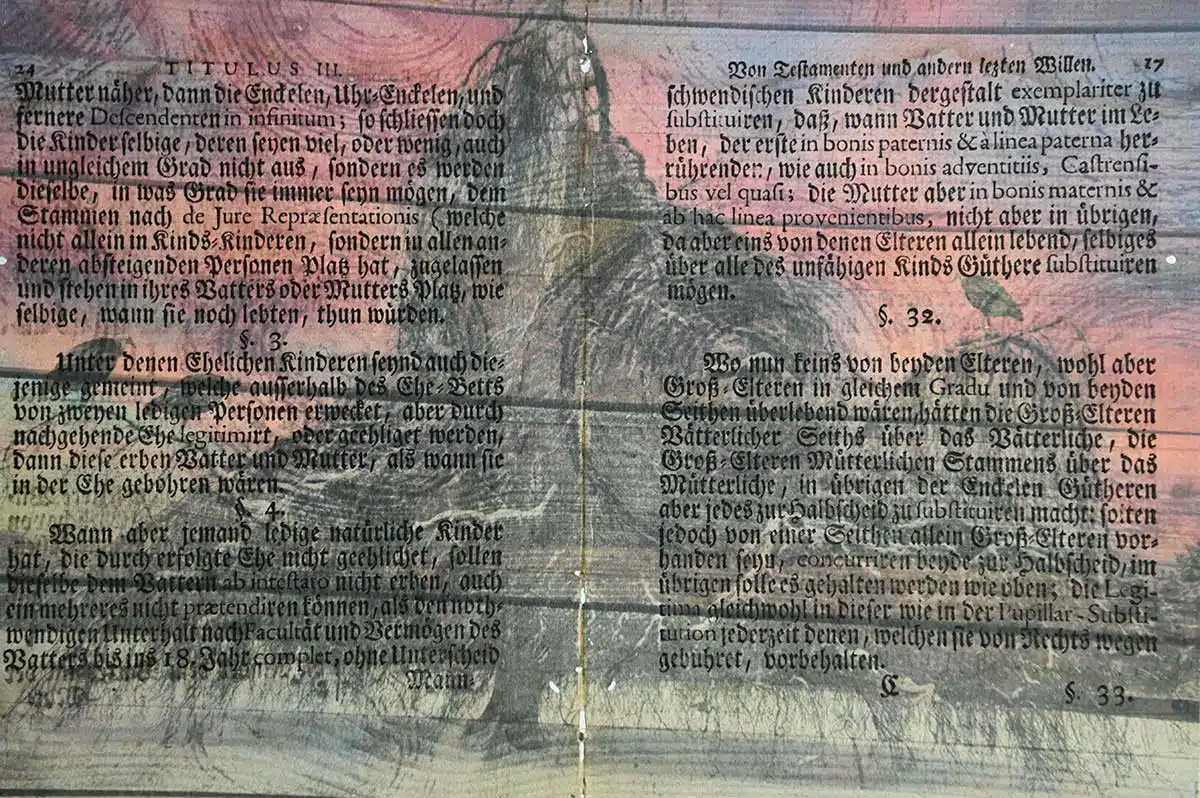 24 TITULUS III.
Mutter näher, dann die Enckelen, Uhr-Enckelen, und
fernere Descendenten in infinitum; so schliessen doch
die Kinder selbige, deren seyen viel, oder wenig, auch
in ungleichem Grad nicht aus, sondern es werden
dieselbe, in was Grad sie immer seyn mögen, dem
Stammen nach de Jure Repræsentationis (welche
nicht allein in Kinds-Kinderen, sondern in allen an-
deren absteigenden Personen Platz hat, zugelassen
und stehen in ihres Vatters oder Mutters Platz, wie
selbige, wann sie noch lebten, thun würden.
§. 3.
Unter denen Ehelichen Kinderen seynd auch die-
jenige gemeint, welche ausserhalb des Ehe-Betts
von zweyen ledigen Personen erwecket, aber durch
nachgehende Ehe legitimirt, oder geehliget werden,
dann diese erben Vatter und Mutter, als wann sie
in der Ehe gebohren wären.
§. 4.
Wann aber jemand ledige natürliche Kinder
hat, die durch erfolgte Ehe nicht geehlichet, sollen
dieselbe dem Vattern ab intestato nicht erben, auch
ein mehreres nicht prætendiren können, als den noth-
wendigen Unterhalt nach Facultät und Vermögen des
Vatters bis ins 18. Jahr complet, ohne Unterscheid
Mann-
Von Testamenten und andern lezten Willen. 17
schwendischen Kinderen dergestalt exemplariter zu
substituiren, daß, wann Vatter und Mutter im Le-
ben, der erste in bonis paternis & à linea paterna her-
rührender, wie auch in bonis adventitiis, Castrensi-
bus vel quasi; die Mutter aber in bonis maternis &
ab hac linea provenientibus, nicht aber in übrigen,
da aber eins von denen Elteren allein lebend, selbiges
über alle des unfähigen Kinds Güthere substituiren
mögen.
§. 32.
Wo nun keins von beyden Elteren, wohl aber
Groß-Elteren in gleichem Gradu und von beyden
Seithen überlebend wären, hätten die Groß-Elteren
Vätterlicher Seiths über das Vätterliche, die
Groß-Elteren Mütterlichen Stammens über das
Mütterliche, in übrigen der Enckelen Gütheren
aber jedes zur Halbscheid zu substituiren macht: solten
jedoch von einer Seithen allein Groß-Elteren vor-
handen seyn, concurriren beyde zur Halbscheid, im
übrigen solle es gehalten werden wie oben; die Legi-
tima gleichwohl in dieser wie in der Pupillar-Substi-
tution jederzeit denen, welchen sie von Rechts wegen
gebühret, vorbehalten.
C §. 33.